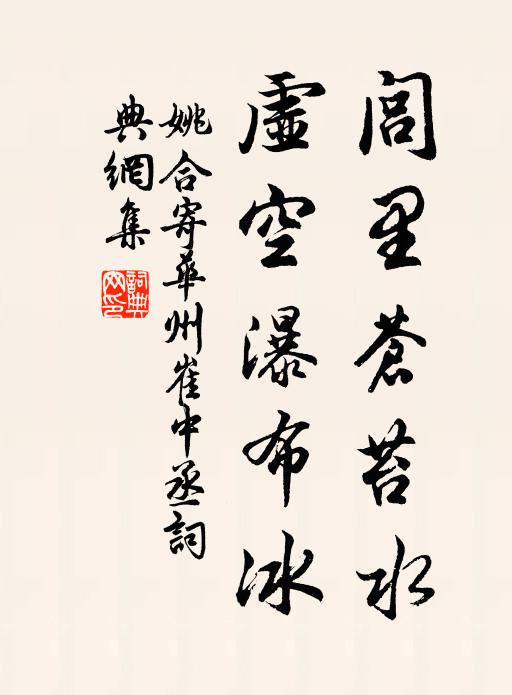 閭里蒼苔水
虛空瀑布冰
姚合寄華州崔中丞詞
典網集
詞典網印